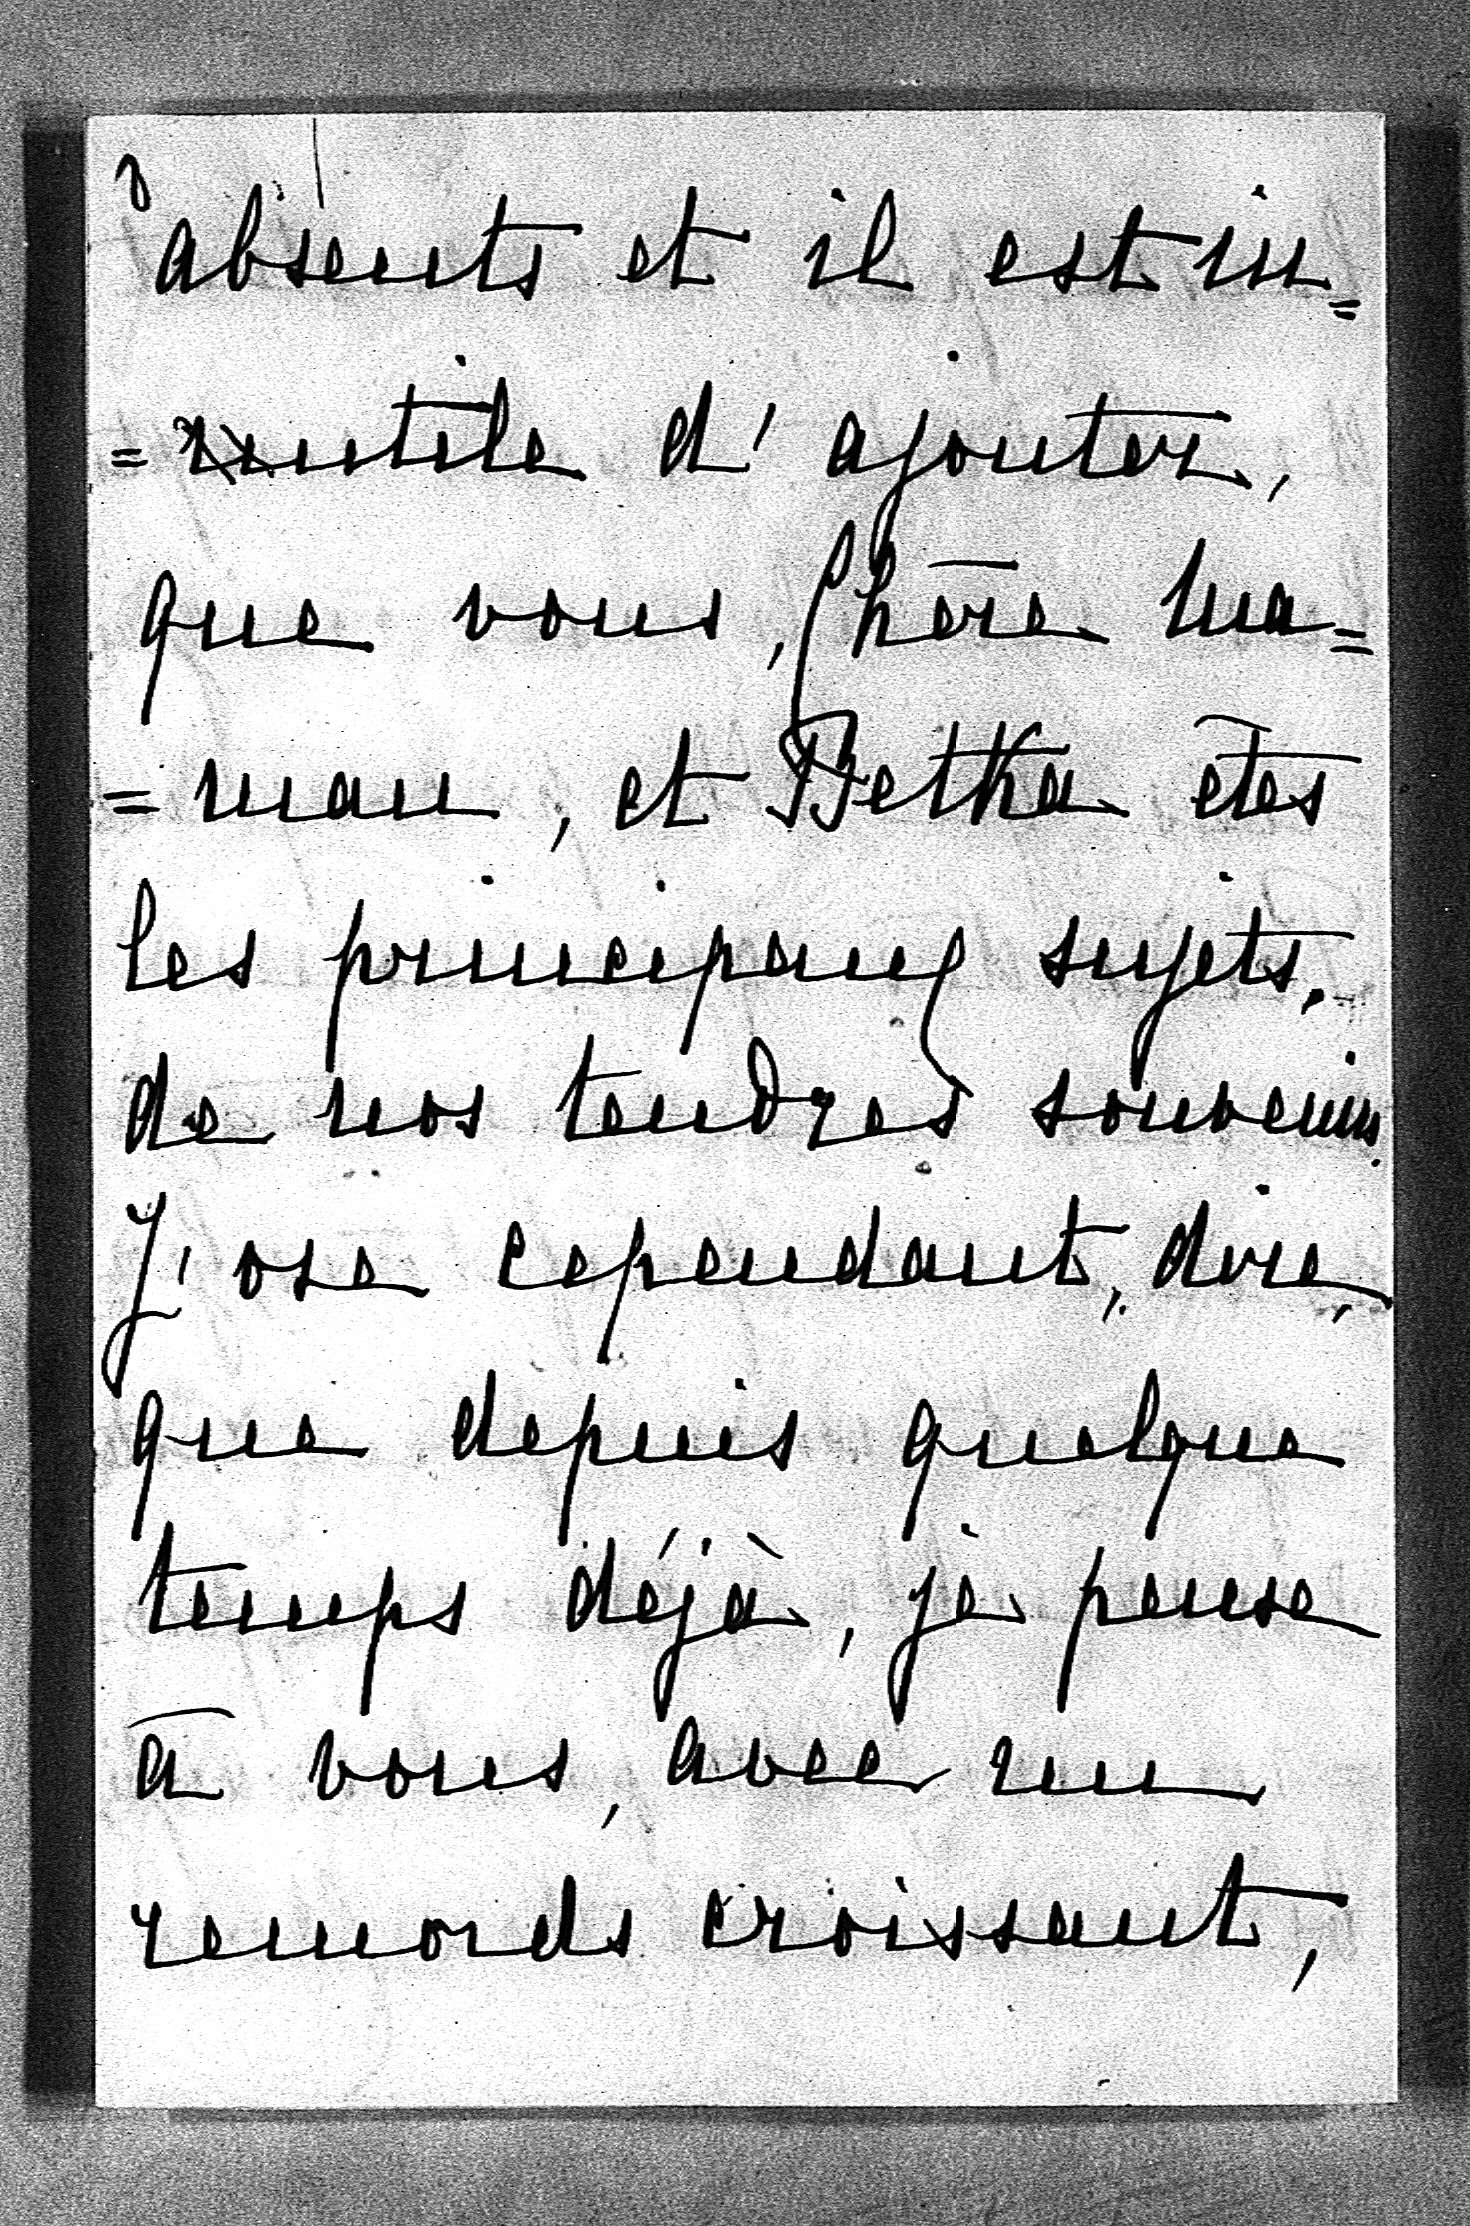 absents et il est in=
=nutile d'ajouter,
que vous, Chère Ma=
=man, et Betka êtes
les principaux sujets,
de nos tendres souvenirs.
J'ose cependant, dire,
que depuis quelque
temps déjà, je pense
à vous, avec un
remords croissant,